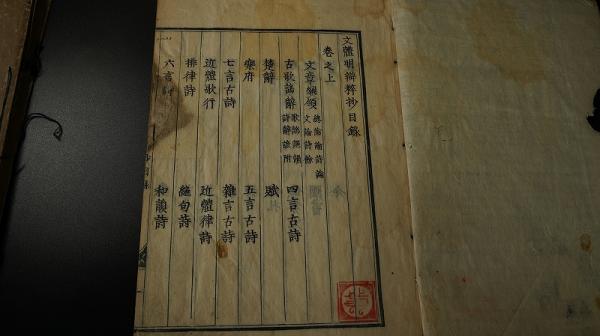 文體明辯粹抄目錄
卷之上
文章綱領 總論 論詩 論文 論詩餘
古歌謠辭 歌 謠 謳 誦 詩 辭 諺附 四言古詩
楚辭 賦
樂府 五言古詩
七言古詩 雜言古詩
近體歌行 近體律詩
排律詩 絕句詩
六言詩 和韻詩